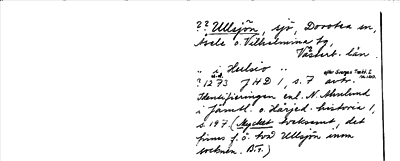 ?? Ullsjön, sjö, Dorotea sn,
Åsele o. Vilhelmina tg,
Västerb. län
" i Hulsio "
? 1273 JHD 1, s. 7 avtr. efter Sveriges Trakt. I
Identifieringen enl. N. Ahnlund
i Jämtl. o. Härjed. historia 1,
s. 197 (Mycket tveksamt, det
finnes f. ö. två Ullsjön inom
socknen. )